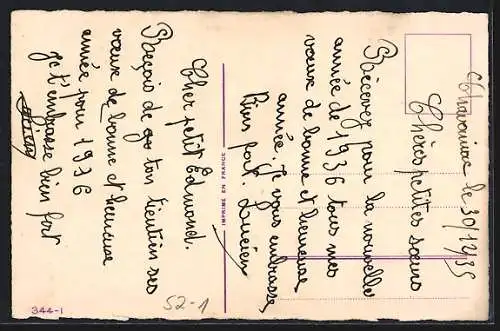 Chavaniac le 30/12/35
Chères petites sœurs
Récevez pour la nouvelle
année de 1936 tous mes
vœux de bonne et heureuse
année. Je vous embrasse
Bien fort. Lucien
Cher petit Edmond.
Reçois de ton tientien ses
vœux de bonne et heureuse
année pour 1936
je t'embrasse bien fort
Lucien
IMPRIMÉ EN FRANCE
344-1
52-1